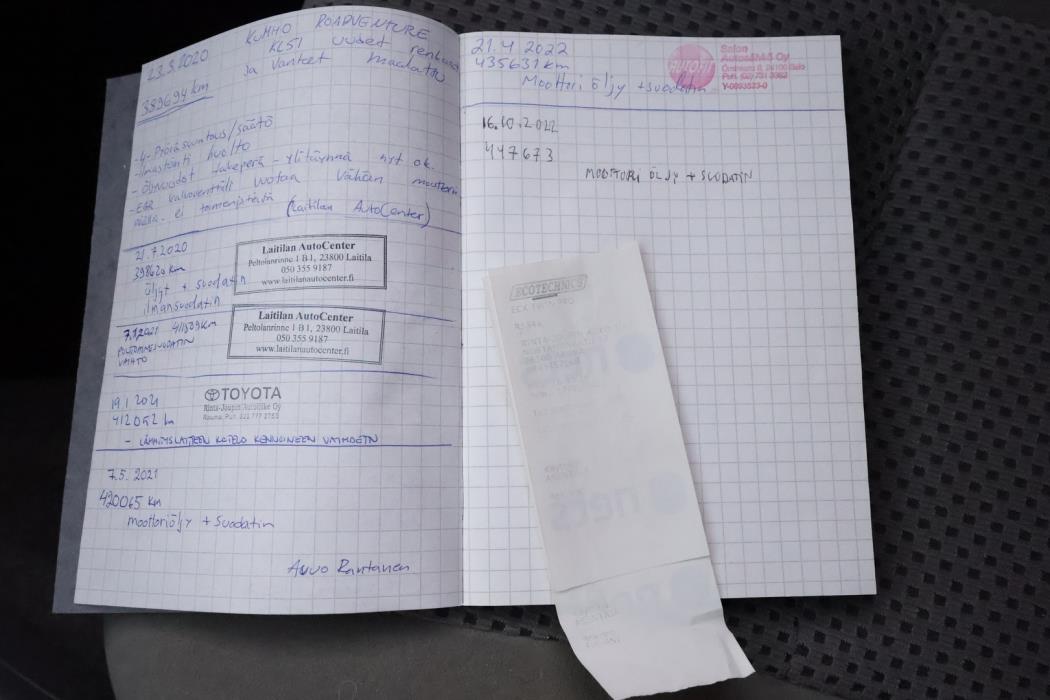 23.3.2020 KUMHO ROADVENTURE
KL51 uudet renkaat
ja vanteet
389694 km
-4-Pyöräsuuntaus/säätö
-Ilmastointi huolto
-Öljyvuodot takaperä - nyt ok.
-EGR vuotaa vähän moottorin
ei (Laitilan AutoCenter)
21.7.2020
398620 km
öljyt + suodatin
ilmansuodatin
Laitilan AutoCenter
Peltolanrinne 1 B1, 23800 Laitila
050 355 9187
www.laitilanautocenter.fi
7.1.2021 411539km
POLTTOAINESUODATIN
VAIHTO
Laitilan AutoCenter
Peltolanrinne 1 B1, 23800 Laitila
050 355 9187
www.laitilanautocenter.fi
19.1.2021
412052 km
TOYOTA
Rinta-Joupin Autoliike Oy
Rauma
- LÄMMITYSLAITTEEN KOTELO KENNOINEEN VAIHDETTU
7.5.2021
420065 km
moottoriöljy + suodatin
Arvo Rantanen
21.4 2022
435631 km
Moottori öljy + suodatin
AUTOFIT
Salon
Autosähkö Oy
24100 Salo
Y-0893523-0
16.10.2022
447673
MOOTTORI ÖLJY + SUODATIN
ECOTECHNICS
ECK TWIN PRO